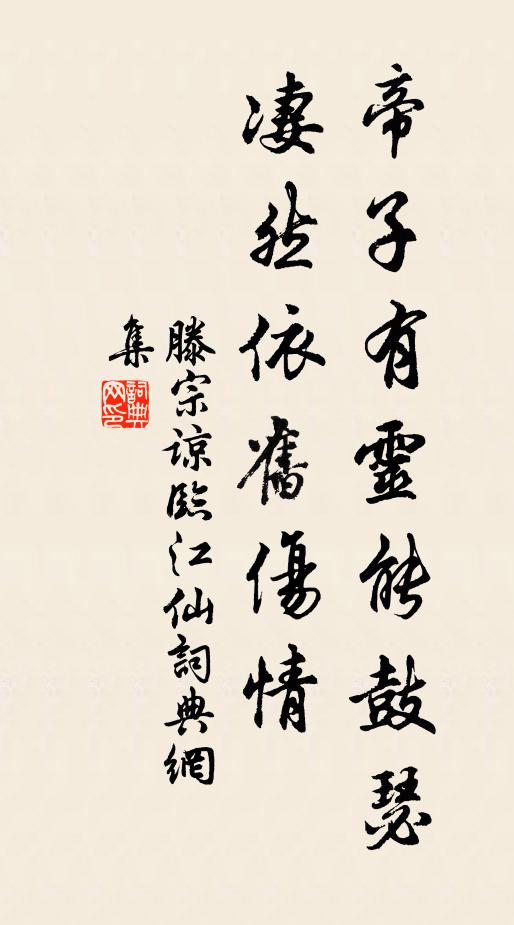 帝子有靈能鼓瑟
凄然依舊傷情
滕宗諒臨江仙詞典網
集
詞典網印